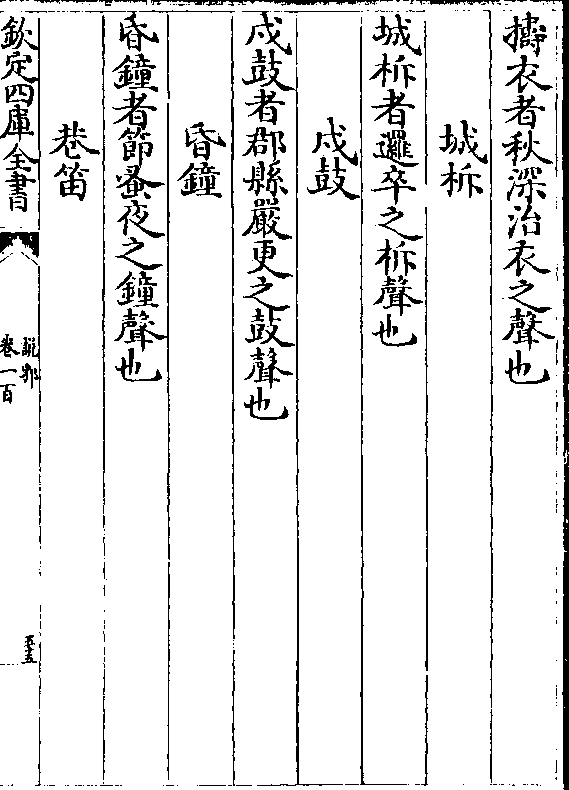 擣衣者秋深治衣之聲也
城柝
城柝者邏卒之柝聲也
戍鼓
戍鼓者郡縣嚴更之鼓聲也
昏鐘
昏鐘者節蚤夜之鐘聲也
巷笛
欽定四庫全書
說郛
卷一百
五五